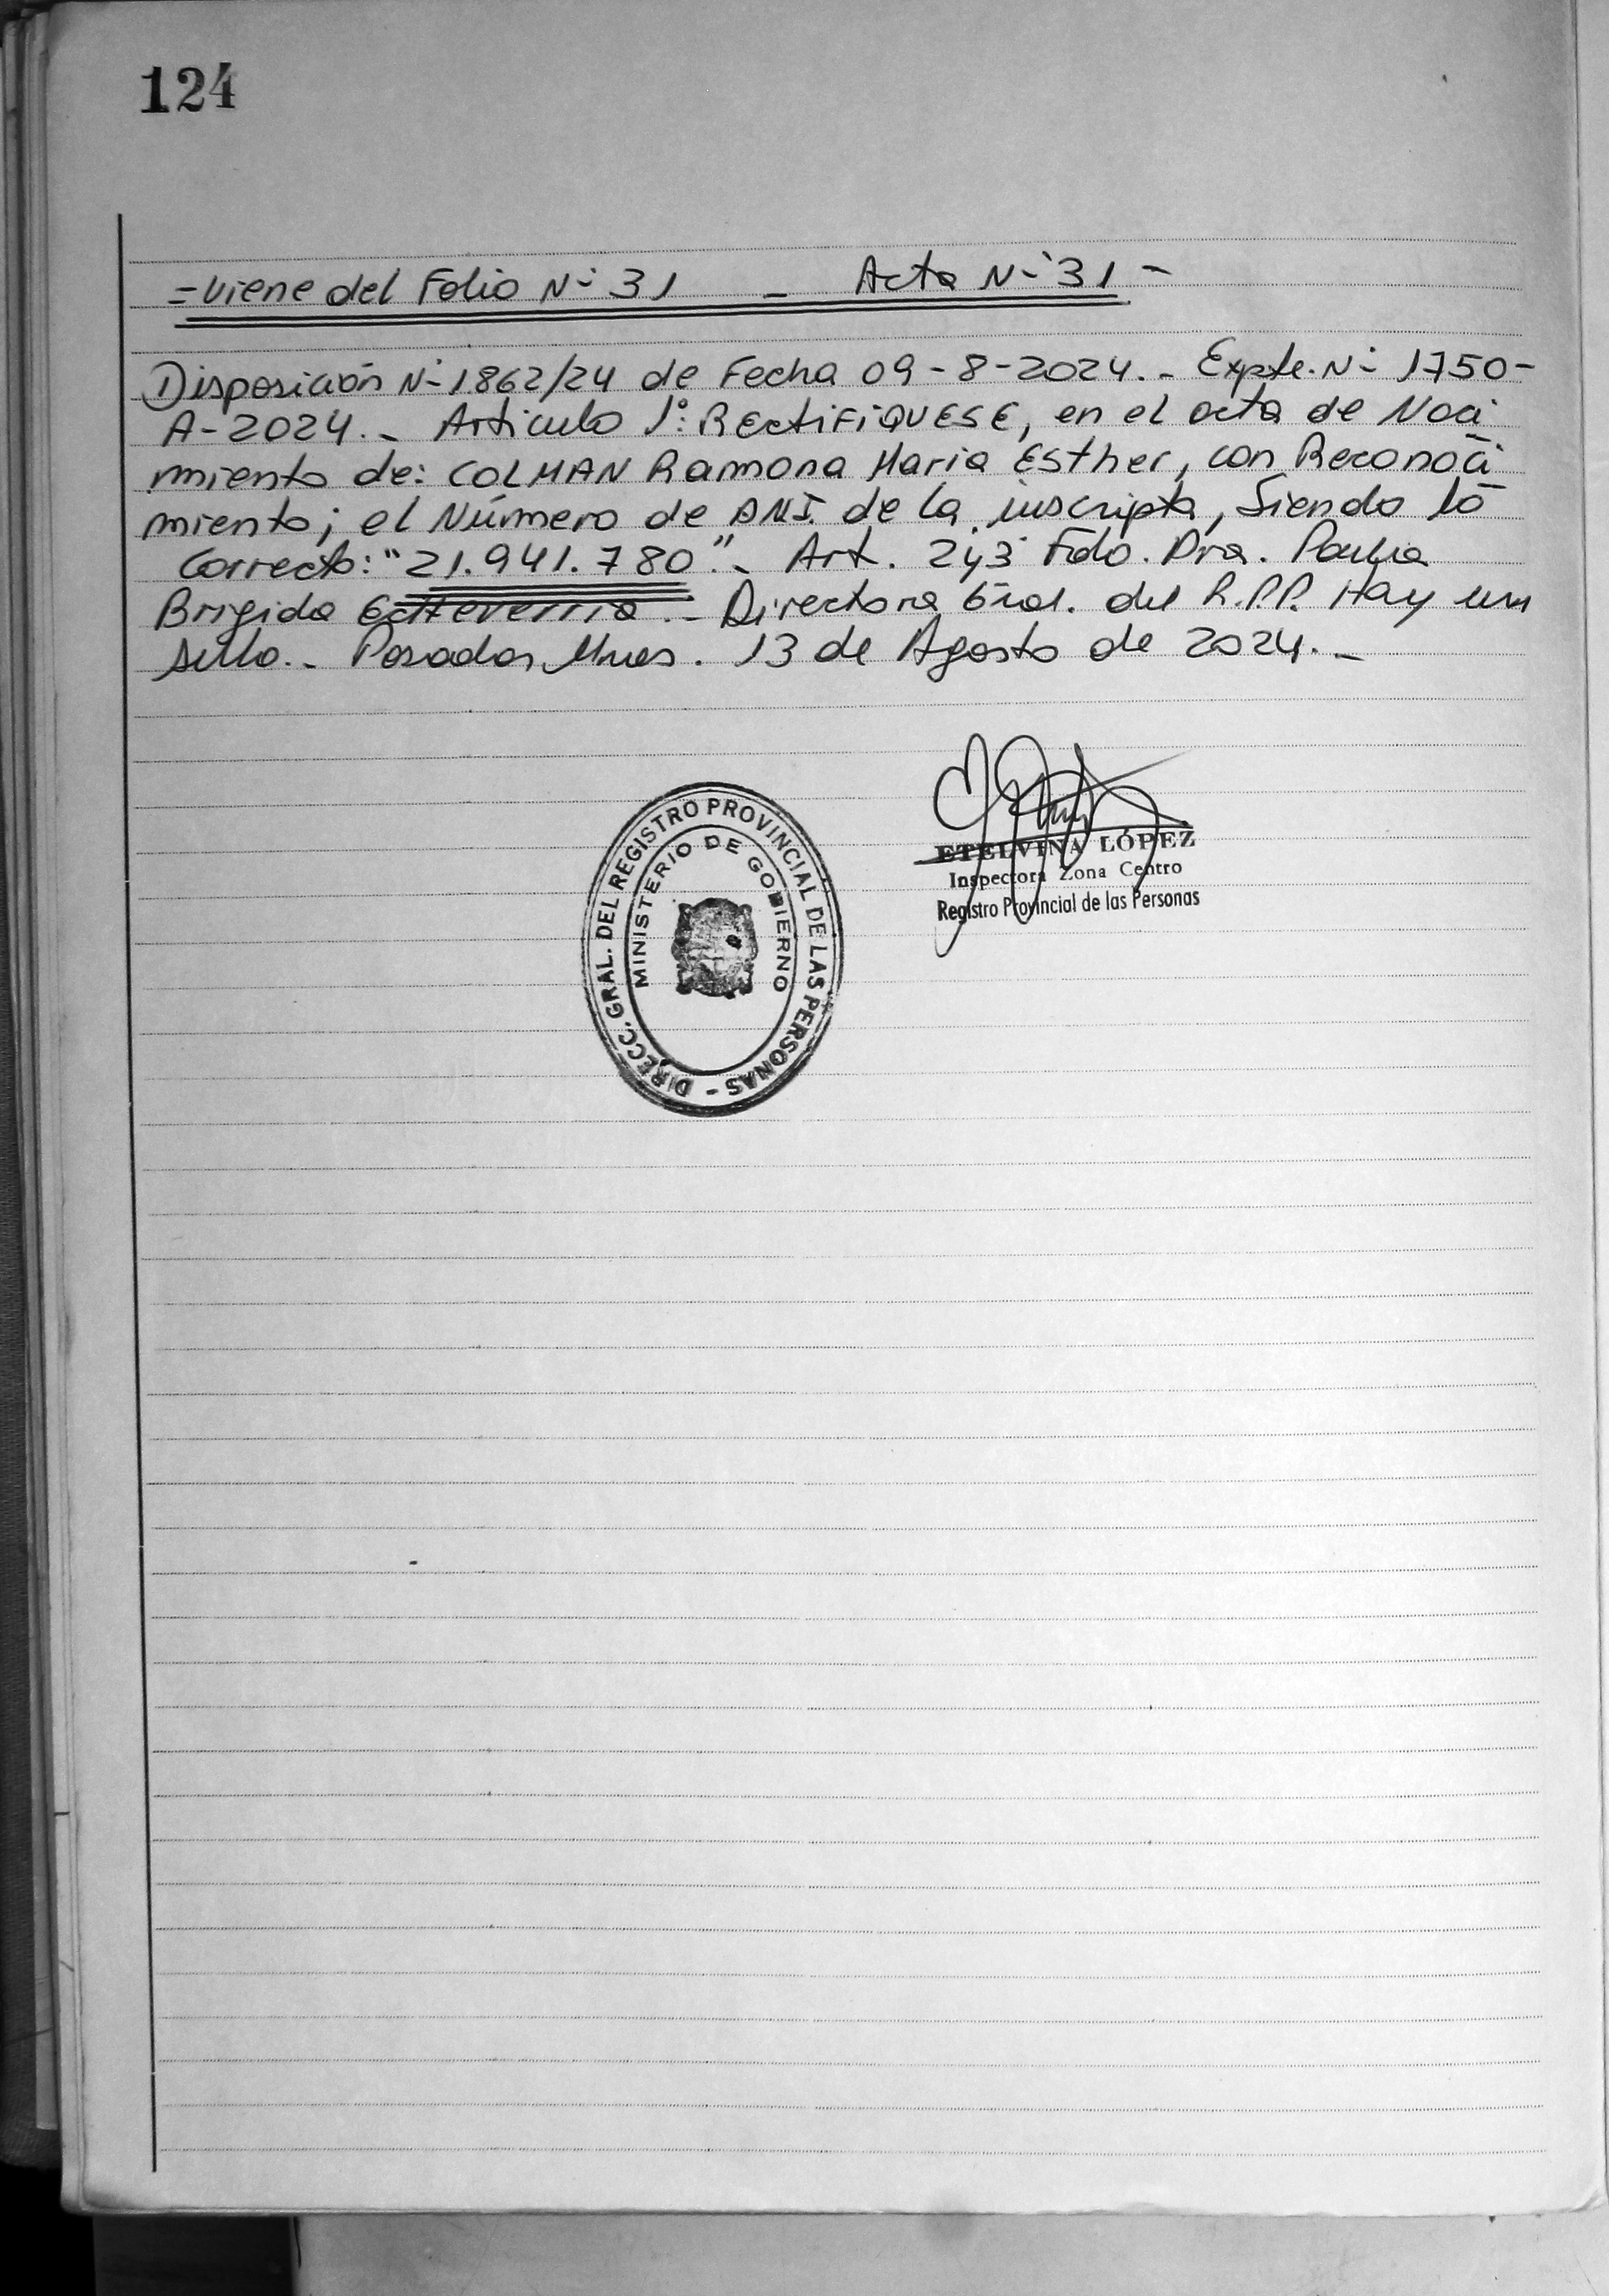 124
=Viene del Folio Nº 31 - Acta Nº 31 -
Disposición Nº 1862/24 de Fecha 09-8-2024.- Expte. Nº 1750-
A-2024.- Articulo 1º: RECTIFIQUESE, en el acta de Naci
miento de: COLMAN Ramona Maria Esther, con Reconoci
miento; el Número de DNI. de la inscripta, Siendo lo
Correcto: "21.941.780".- Art. 2y3 Fdo. Dra. Paula
Brigida Echeverria.- Directora Gral. del R.P.P. Hay un
sello.- Posadas, Mnes. 13 de Agosto de 2024.-
DIRECC. GRAL. DEL REGISTRO PROVINCIAL DE LAS PERSONAS -
MINISTERIO DE GOBIERNO
ETELVINA LÓPEZ
Inspectora Zona Centro
Registro Provincial de las Personas